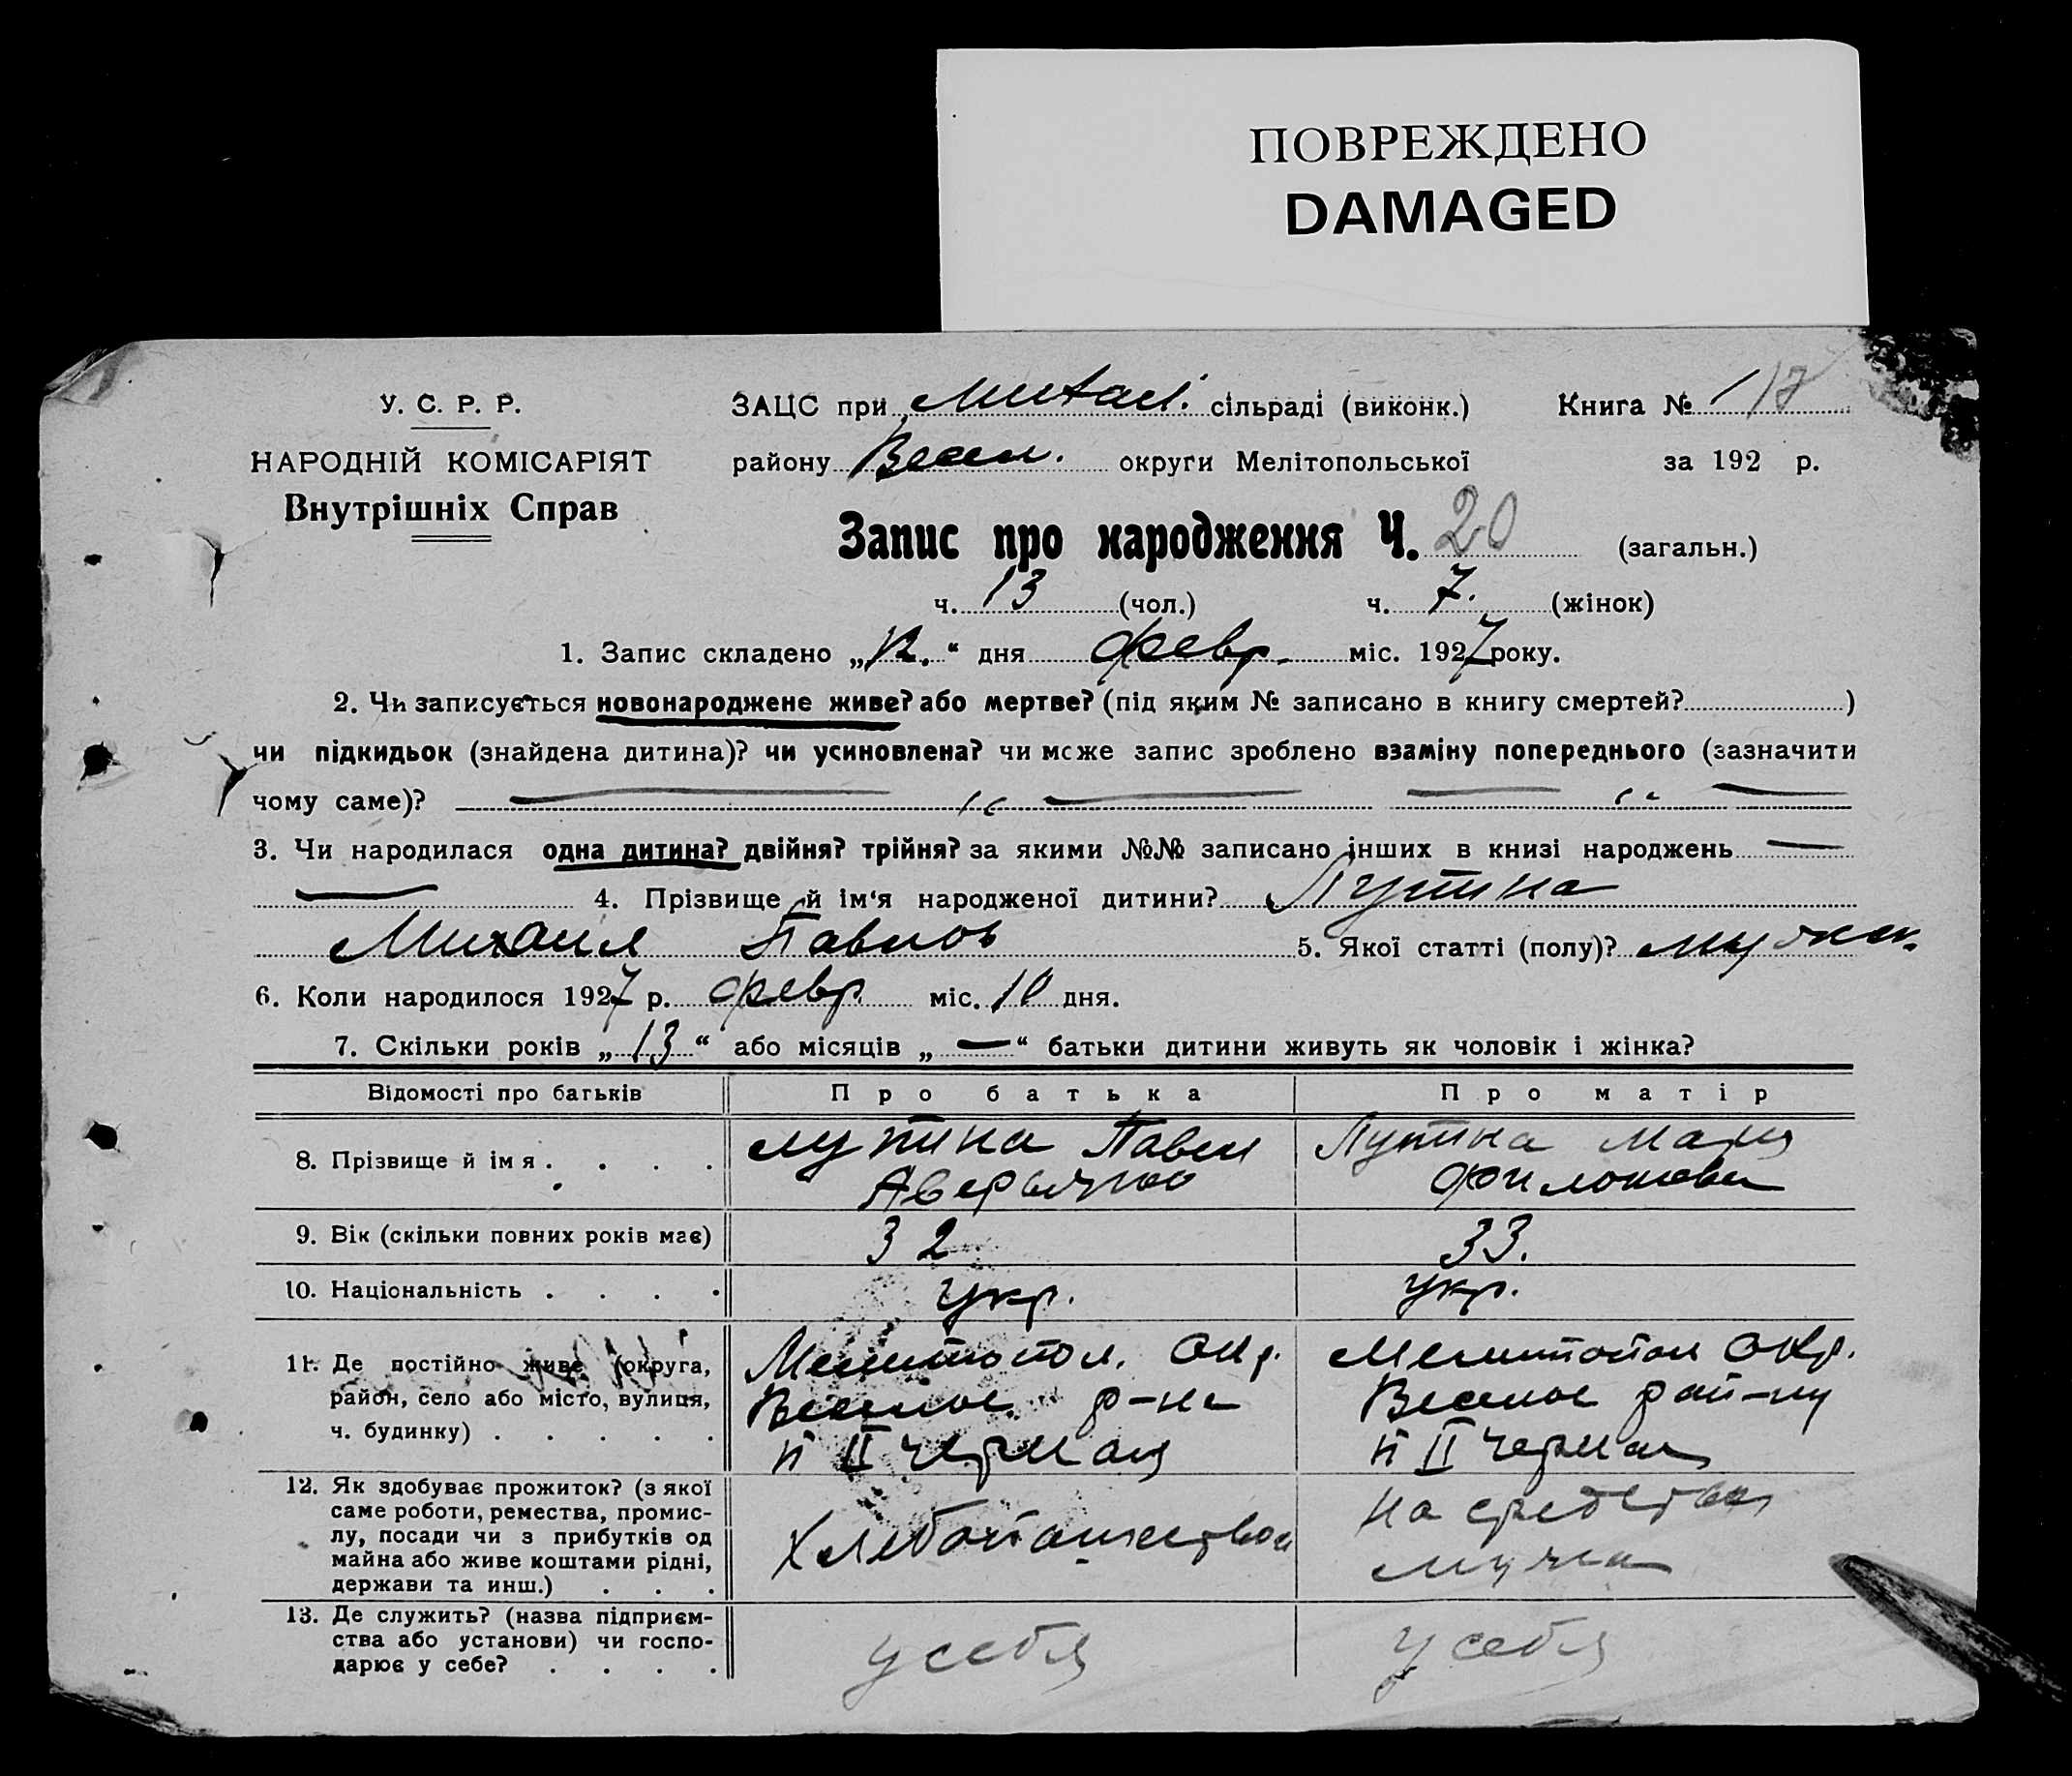 ПОВРЕЖДЕНО
DAMAGED
У. С. Р. Р.
НАРОДНІЙ КОМІСАРІЯТ
Внутрішніх Справ
ЗАЦС при Михай. сільраді (виконк.) Книга № 1/7
району Весел. округи Мелітопольської за 192 р.
Запис про народження Ч. 20 (загальн.)
ч. 13 (чол.) ч. 7. (жінок)
1. Запис складено „12.“ дня февр. міс. 1927 року.
2. Чи записується новонароджене живе? або мертве? (під яким № записано в книгу смертей? )
чи підкидьок (знайдена дитина)? чи усиновлена? чи може запис зроблено взаміну попереднього (зазначити
чому саме)?
3. Чи народилася одна дитина? двійня? трійня? за якими №№ записано інших в книзі народжень —
— 4. Прізвище й ім'я народженої дитини? Лутина
Михаил Павлов 5. Якої статті (полу)? мужск.
6. Коли народилося 1927 р. февр. міс. 10 дня.
7. Скільки років „13“ або місяців „—“ батьки дитини живуть як чоловік і жінка?
Відомості про батьків Про батька Про матір
8. Прізвище й ім я . . . . Лутина Павел Лутина Мария
Филонова
9. Вік (скільки повних років має) 32 33.
10. Національність . . . . укр. укр.
11. Де постійно живе (округа, Мелитопол. Окр. Мелитопол Окр.
район, село або місто, вулиця, Веселое р-на Веселое рай-ну
ч. будинку) . . . . . п II п II
12. Як здобуває прожиток? (з якої
саме роботи, ремества, промис-
лу, посади чи з прибутків од
майна або живе коштами рідні,
держави та инш.) . . . Хлебопашеством на средства
мужа
13. Де служить? (назва підприєм-
ства або установи) чи госпо-
дарює у себе? . . . . у себя у себя